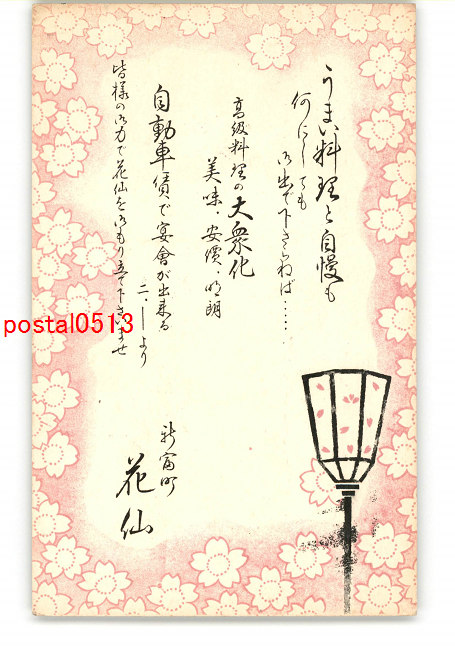 うまい料理と自慢も
何にしても
御出で下さらねば……
高級料理の大衆化
美味、安價、明朗
自動車賃で宴會が出来る
二、ーより
皆様の御力で花仙を御もり立て下さいませ
新富町
花仙
postal0513